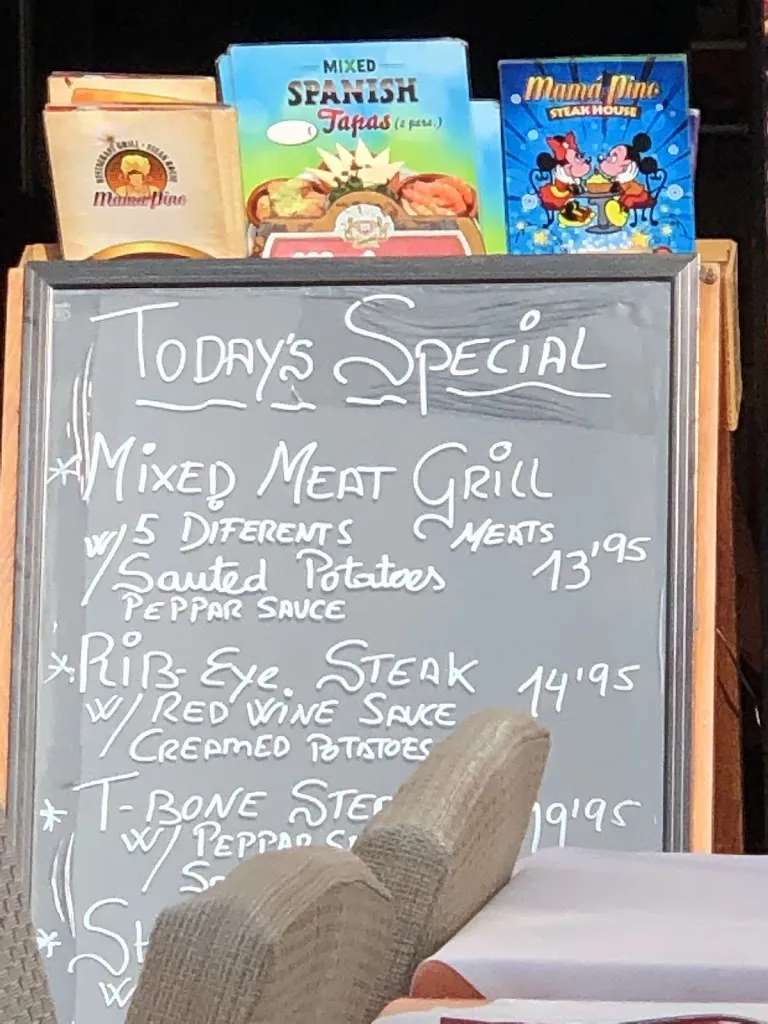 MIXED
SPANISH
Tapas (2 pers.)
Mamá Pino
STEAK HOUSE
RESTAURANT GRILL · STEAK HOUSE
Mama Pino
TODAY'S SPECIAL
* MIXED MEAT GRILL
W/ 5 DIFERENTS MEATS
/ Sauted Potatoes 13'95
PEPPAR SAUCE
* RIB-EYE. STEAK 14'95
W/ RED WINE SAUCE
/ CREAMED POTATOES
* T-BONE 19'95
W/ PEPPAR
/
*
W